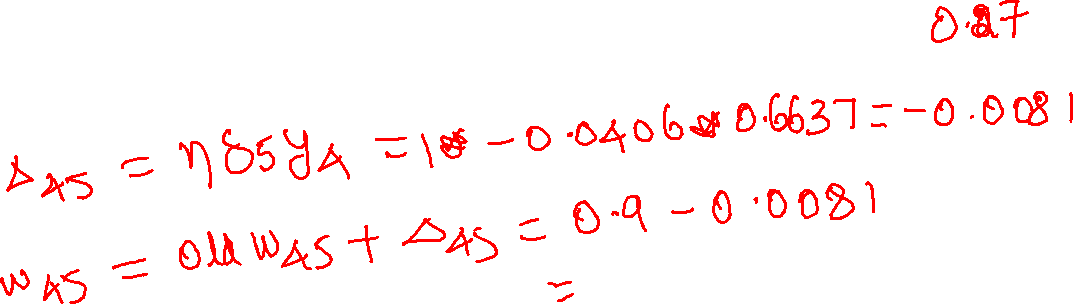 0.27
Δ45 = η δ5 y4 = 1 * -0.0406 * 0.6637 = -0.0081
w45 = old w45 + Δ45 = 0.9 - 0.0081
=